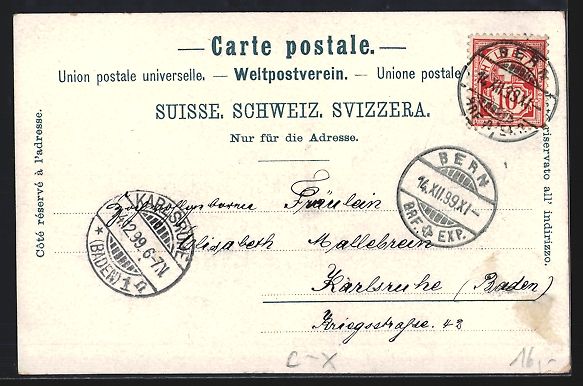 — Carte postale. —
Union postale universelle. — Weltpostverein. — Unione postale
SUISSE. SCHWEIZ. SVIZZERA.
Nur für die Adresse.
Côté réservé à l'adresse.
riservato all' indirizzo.
BERN
14.XII.99.XI–
10
BERN
14.XII.99.XI–
BRF. EXP.
KARLSRUHE
12.99. 6-7N.
* (BADEN) 1
Fräulein
Elisabeth Mallebrein
Karlsruhe (Baden)
Kriegsstraße. 42
C-X
16,-